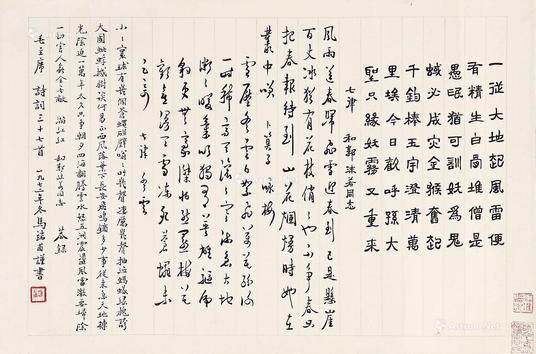 一從大地起風雷便
有精生白骨堆僧是
愚氓猶可訓妖為鬼
蜮必成災金猴奮起
千鈞棒玉宇澄清萬
里埃今日歡呼孫大
聖只緣妖霧又重來
七律 和郭沫若同志
風雨送春歸飛雪迎春到已是懸崖
百丈冰猶有花枝俏俏也不爭春只
把春來報待到山花爛漫時她在
叢中笑 卜算子 詠梅
雪壓冬雲白絮飛萬花紛謝
一時稀高天滾滾寒流急大地
微微暖氣吹獨有英雄驅虎
豹更無豪傑怕熊羆梅花
歡喜漫天雪凍死蒼蠅未
足奇 七律 冬雲
小小寰球有幾個蒼蠅碰壁嗡嗡叫幾聲淒厲幾聲抽泣螞蟻緣槐誇
大國蚍蜉撼樹談何易正西風落葉下長安飛鳴鏑多少事從來急天地轉
光陰迫一萬年太久只爭朝夕四海翻騰雲水怒五洲震盪風雷激要掃除
一切害人蟲全無敵 滿江紅 和郭沫若同志 恭錄
毛主席詩詞三十七首 一九七二年冬馬 謹書